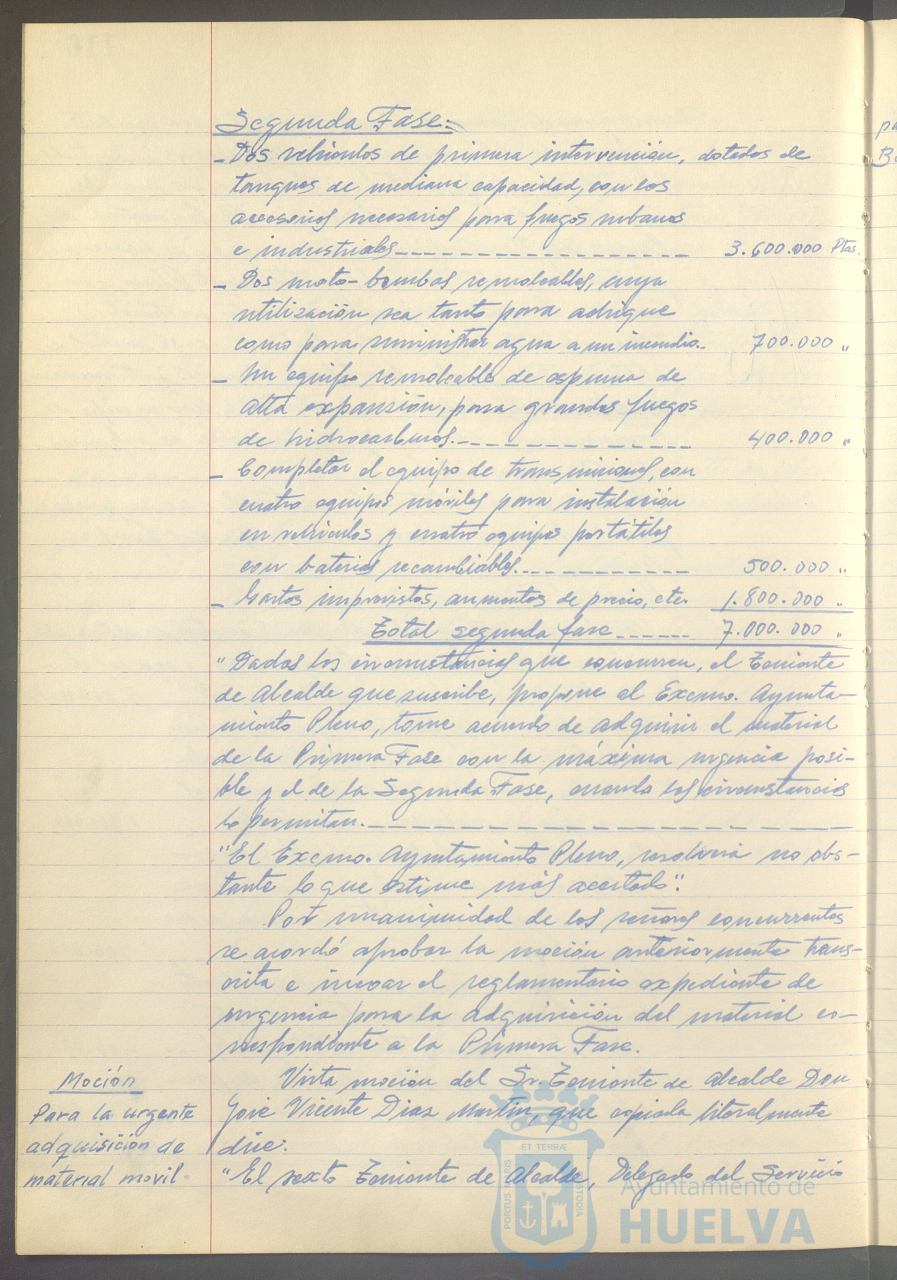 Segunda Fase=
- Dos vehículos de primera intervención, dotados de
tanques de mediana capacidad, con los
accesorios necesarios para fuegos urbanos
e industriales 3.600.000 Ptas.
- Dos moto-bombas remolcables, cuya
utilización sea tanto para achique
como para suministrar agua a un incendio.- 700.000 "
- Un equipo remolcable de espuma de
alta expansión, para grandes fuegos
de hidrocarburos. 400.000 "
- Completar el equipo de transmisiones, con
cuatro equipos móviles para instalación
en vehículos y cuatro equipos portátiles
con baterías recambiables. 500.000 "
- Gastos imprevistos, aumentos de precio, etc. 1.800.000 "
Total segunda fase 7.000.000 "
"Dadas las circunstancias que concurren, el Teniente
de Alcalde que suscribe, propone al Excmo. Ayunta-
miento Pleno, tome acuerdo de adquirir el material
de la Primera Fase con la máxima urgencia posi-
ble y el de la Segunda Fase, cuando las circunstancias
lo permitan.
"El Excmo. Ayuntamiento Pleno, resolverá no obs-
tante lo que estime más acertado".
Por unanimidad de los señores concurrentes
se acordó aprobar la moción anteriormente trans-
crita e incoar el reglamentario expediente de
urgencia para la adquisición del material co-
rrespondiente a la Primera Fase.
Moción
Para la urgente
adquisición de
material movil-
Vista moción del Sr. Teniente de Alcalde Don
José Vicente Diaz Martin, que copiada literalmente
dice:
"El sexto Teniente de Alcalde, Delegado del Servicio
PORTUS MARIS ET TERRÆ CUSTODIA
Ayuntamiento de
HUELVA
pa